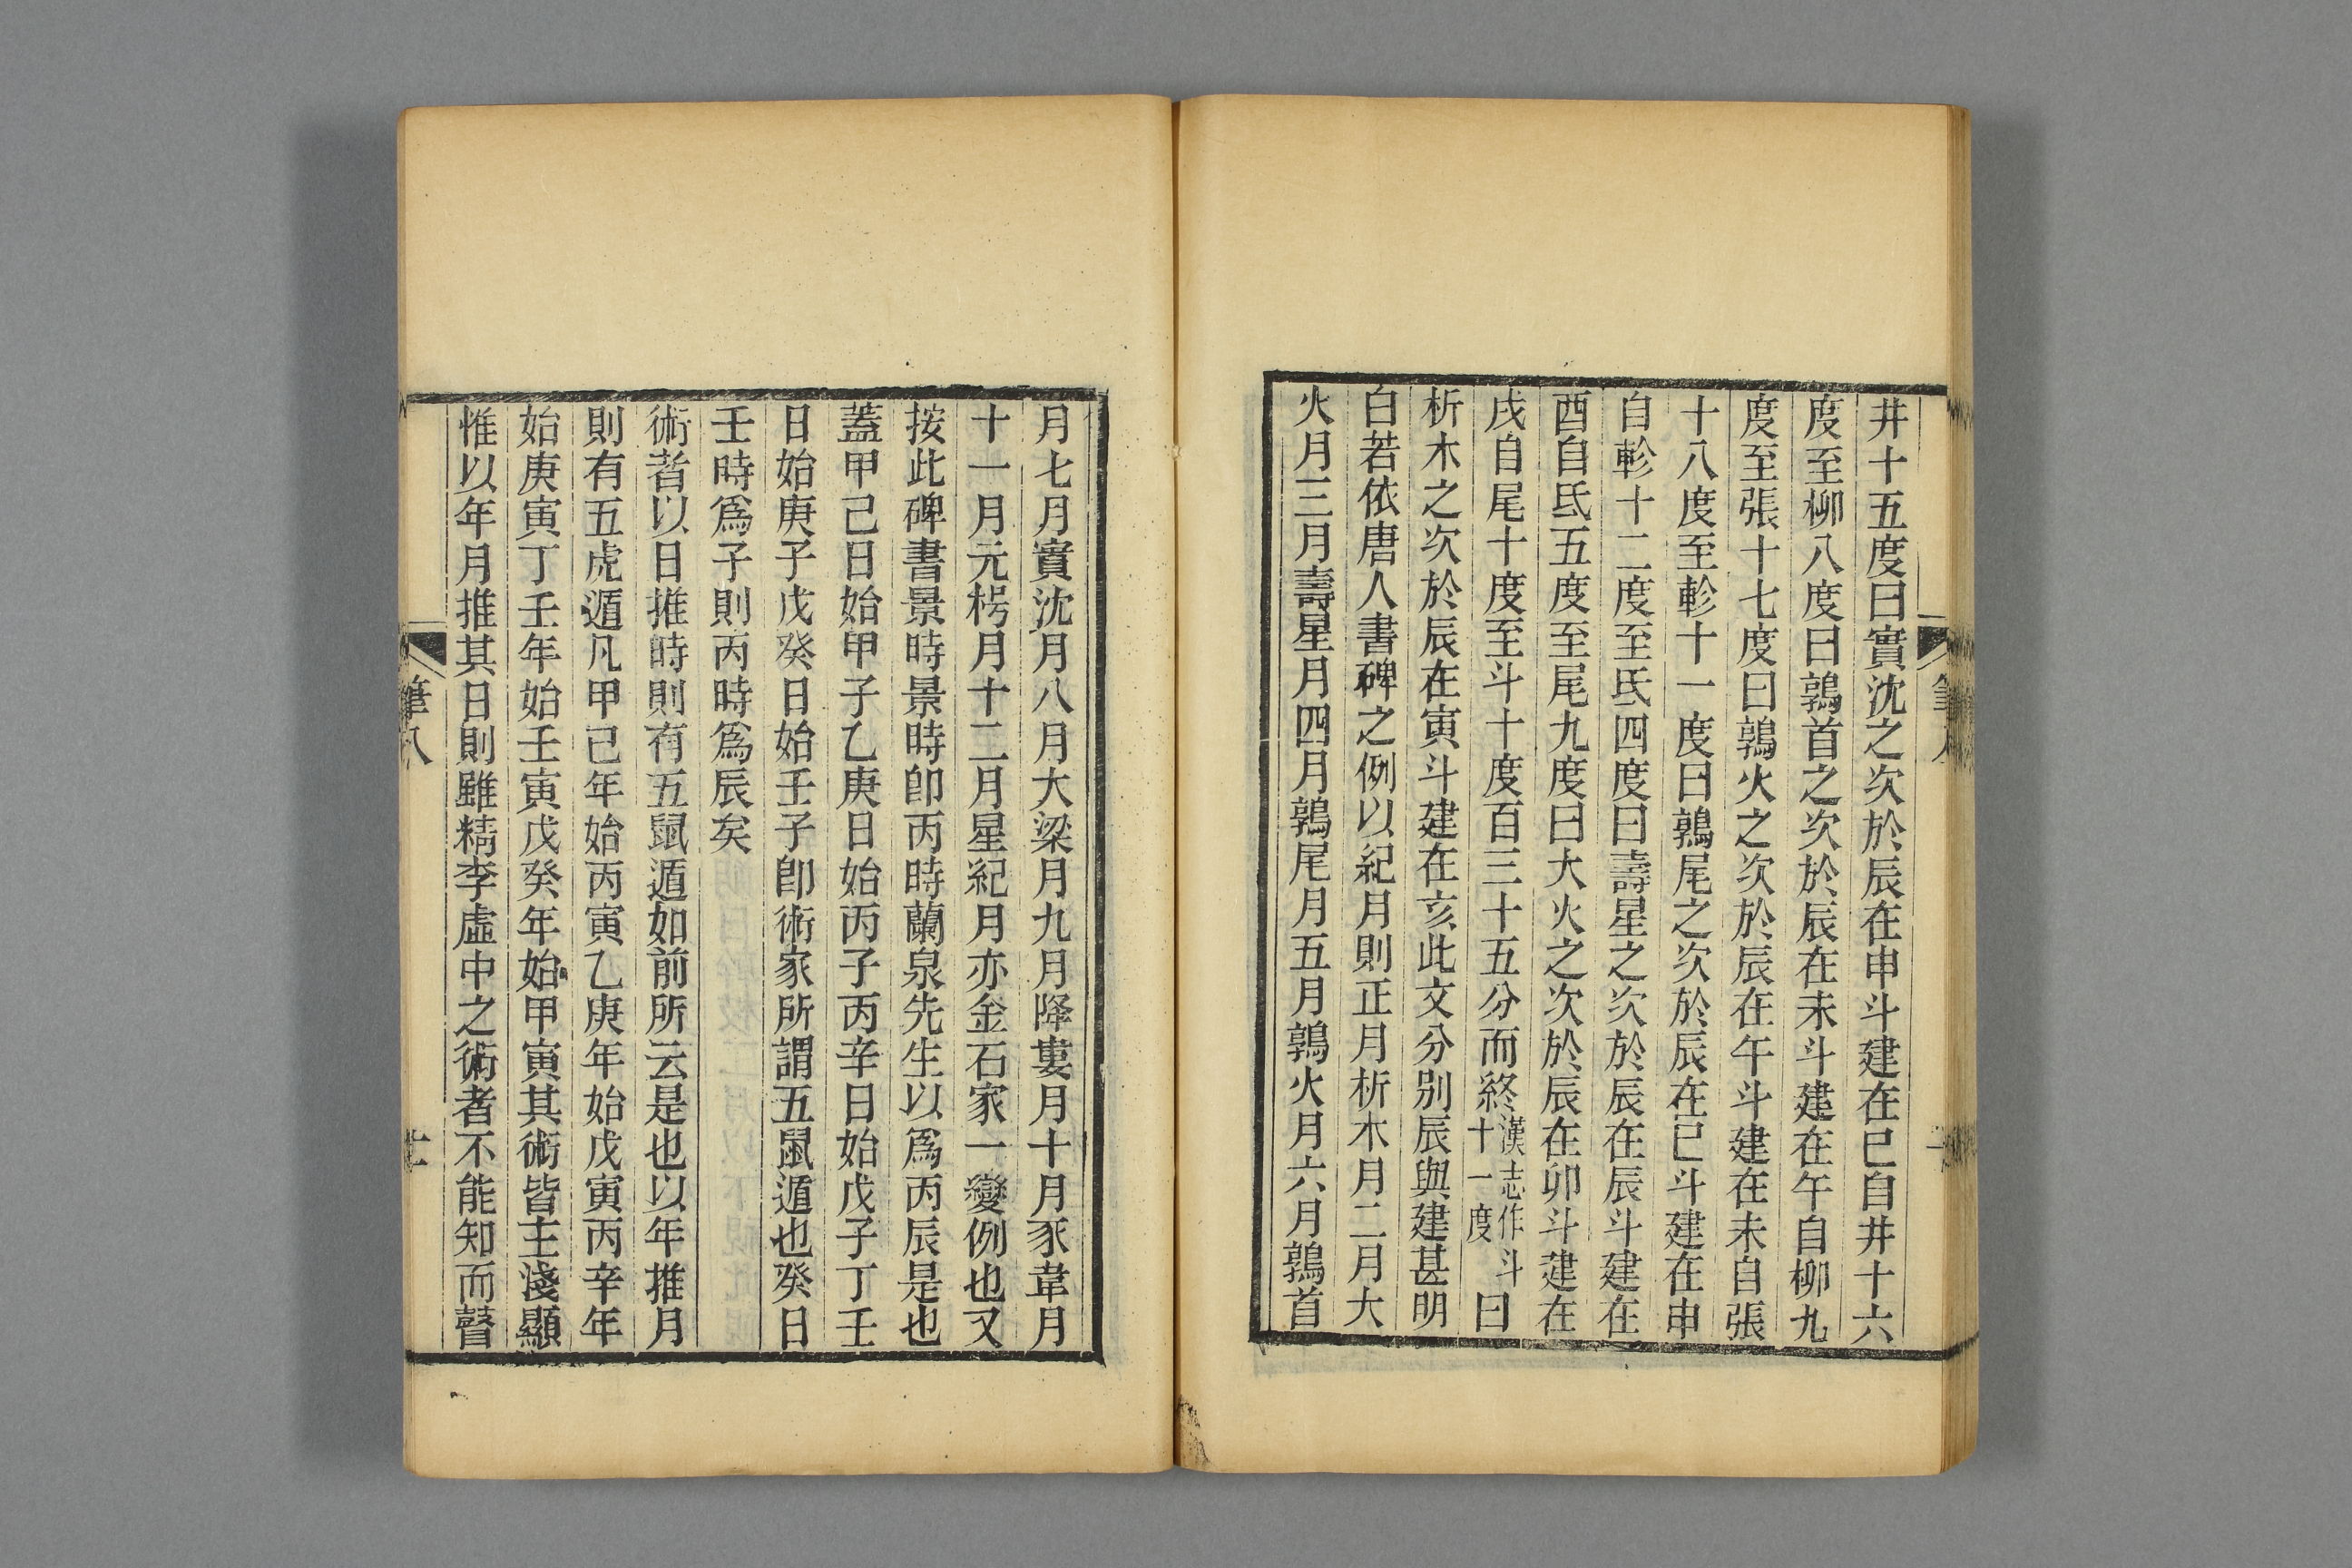 井十五度曰實沈之次於辰在申斗建在巳自井十六
度至柳八度曰鶉首之次於辰在未斗建在午自柳九
度至張十七度曰鶉火之次於辰在午斗建在未自張
十八度至軫十一度曰鶉尾之次於辰在巳斗建在申
自軫十二度至氐四度曰壽星之次於辰在辰斗建在
酉自氐五度至尾九度曰大火之次於辰在卯斗建在
戌自尾十度至斗十度百三十五分而終漢志作斗十一度曰
析木之次於辰在寅斗建在亥此文分别辰與建甚明
白若依唐人書碑之例以紀月則正月析木月二月大
火月三月壽星月四月鶉尾月五月鶉火月六月鶉首
月七月實沈月八月大梁月九月降婁月十月豕韋月
十一月元枵月十二月星紀月亦金石家一變例也又
按此碑書景時景時卽丙時蘭泉先生以爲丙辰是也
蓋甲己日始甲子乙庚日始丙子丙辛日始戊子丁壬
日始庚子戊癸日始壬子卽術家所謂五鼠遁也癸日
壬時爲子則丙時爲辰矣
術者以日推時則有五鼠遁如前所云是也以年推月
則有五虎遁凡甲己年始丙寅乙庚年始戊寅丙辛年
始庚寅丁壬年始壬寅戊癸年始甲寅其術皆主淺顯
惟以年月推其日則雖精李虛中之術者不能知而瞽
筆八